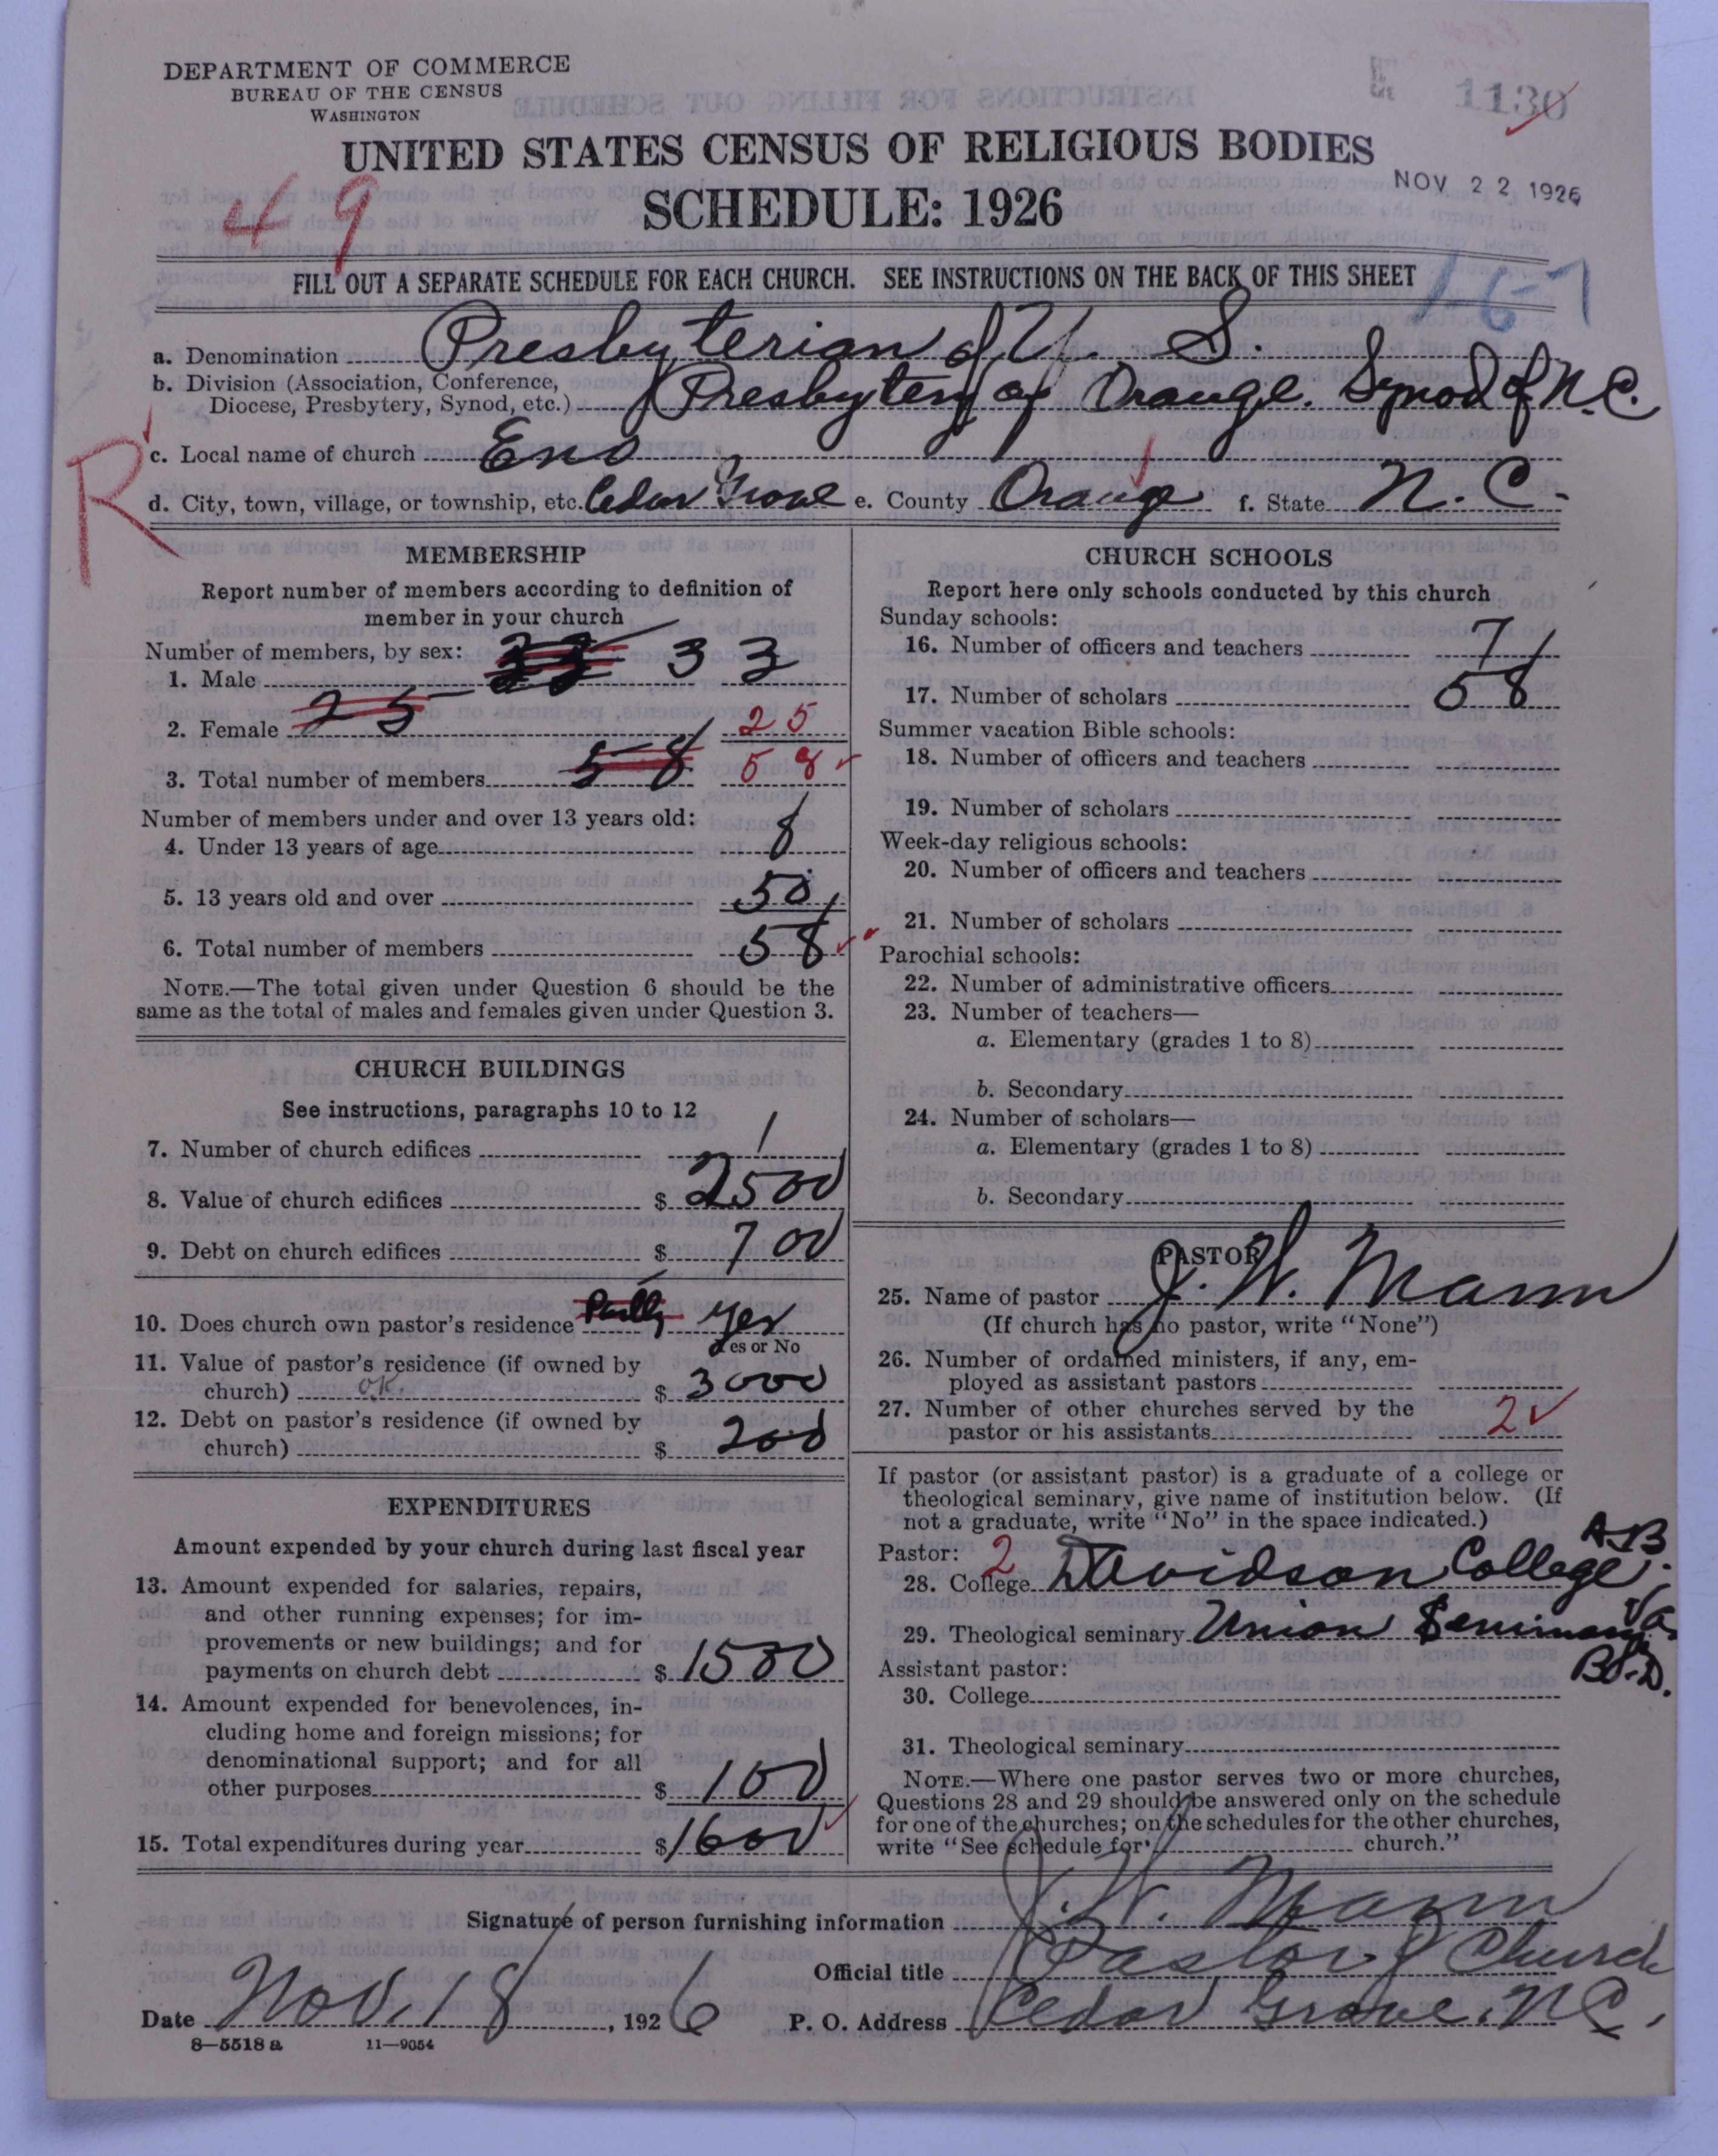 DEPARTMENT OF COMMERCE
BUREAU OF THE CENSUS
WASHINGTON
1130
UNITED STATES CENSUS OF RELIGIOUS BODIES
SCHEDULE: 1926
NOV 22 1926
49
FILL OUT A SEPARATE SCHEDULE FOR EACH CHURCH. SEE INSTRUCTIONS ON THE BACK OF THIS SHEET
a. Denomination Presbyterian of U. S.
b. Division (Association, Conference,
Diocese, Presbytery, Synod, etc.) Presbytery of Orange. Synod of N.C.
R
c. Local name of church Eno
d. City, town, village, or township, etc. Cedar Grove e. County Orange f. State N. C.
MEMBERSHIP
Report number of members according to definition of
member in your church
Number of members, by sex:
1. Male 33
2. Female 25 25
3. Total number of members 58 58
Number of members under and over 13 years old:
4. Under 13 years of age 8
5. 13 years old and over 50
6. Total number of members 58
NOTE.—The total given under Question 6 should be the
same as the total of males and females given under Question 3.
CHURCH BUILDINGS
See instructions, paragraphs 10 to 12
7. Number of church edifices 1
8. Value of church edifices $ 2500
9. Debt on church edifices $ 700
10. Does church own pastor's residence Partly yes
Yes or No
11. Value of pastor's residence (if owned by
church) OK. $ 3000
12. Debt on pastor's residence (if owned by
church) $ 200
EXPENDITURES
Amount expended by your church during last fiscal year
13. Amount expended for salaries, repairs,
and other running expenses; for im-
provements or new buildings; and for
payments on church debt $ 1500
14. Amount expended for benevolences, in-
cluding home and foreign missions; for
denominational support; and for all
other purposes $ 100
15. Total expenditures during year $ 1600
CHURCH SCHOOLS
Report here only schools conducted by this church
Sunday schools:
16. Number of officers and teachers 7
17. Number of scholars 58
Summer vacation Bible schools:
18. Number of officers and teachers
19. Number of scholars
Week-day religious schools:
20. Number of officers and teachers
21. Number of scholars
Parochial schools:
22. Number of administrative officers
23. Number of teachers—
a. Elementary (grades 1 to 8)
b. Secondary
24. Number of scholars—
a. Elementary (grades 1 to 8)
b. Secondary
PASTOR
25. Name of pastor J. W. Mann
(If church has no pastor, write "None")
26. Number of ordained ministers, if any, em-
ployed as assistant pastors
27. Number of other churches served by the
pastor or his assistants 2
If pastor (or assistant pastor) is a graduate of a college or
theological seminary, give name of institution below. (If
not a graduate, write "No" in the space indicated.)
Pastor: 2
28. College Davidson College A.B.
29. Theological seminary Union Seminary Va
B.D.
Assistant pastor:
30. College
31. Theological seminary
NOTE.—Where one pastor serves two or more churches,
Questions 28 and 29 should be answered only on the schedule
for one of the churches; on the schedules for the other churches,
write "See schedule for church."
Signature of person furnishing information J. W. Mann
Official title Pastor of Church
Date Nov. 18, 1926 P. O. Address Cedar Grove. N.C.
8—5518 a 11—9054